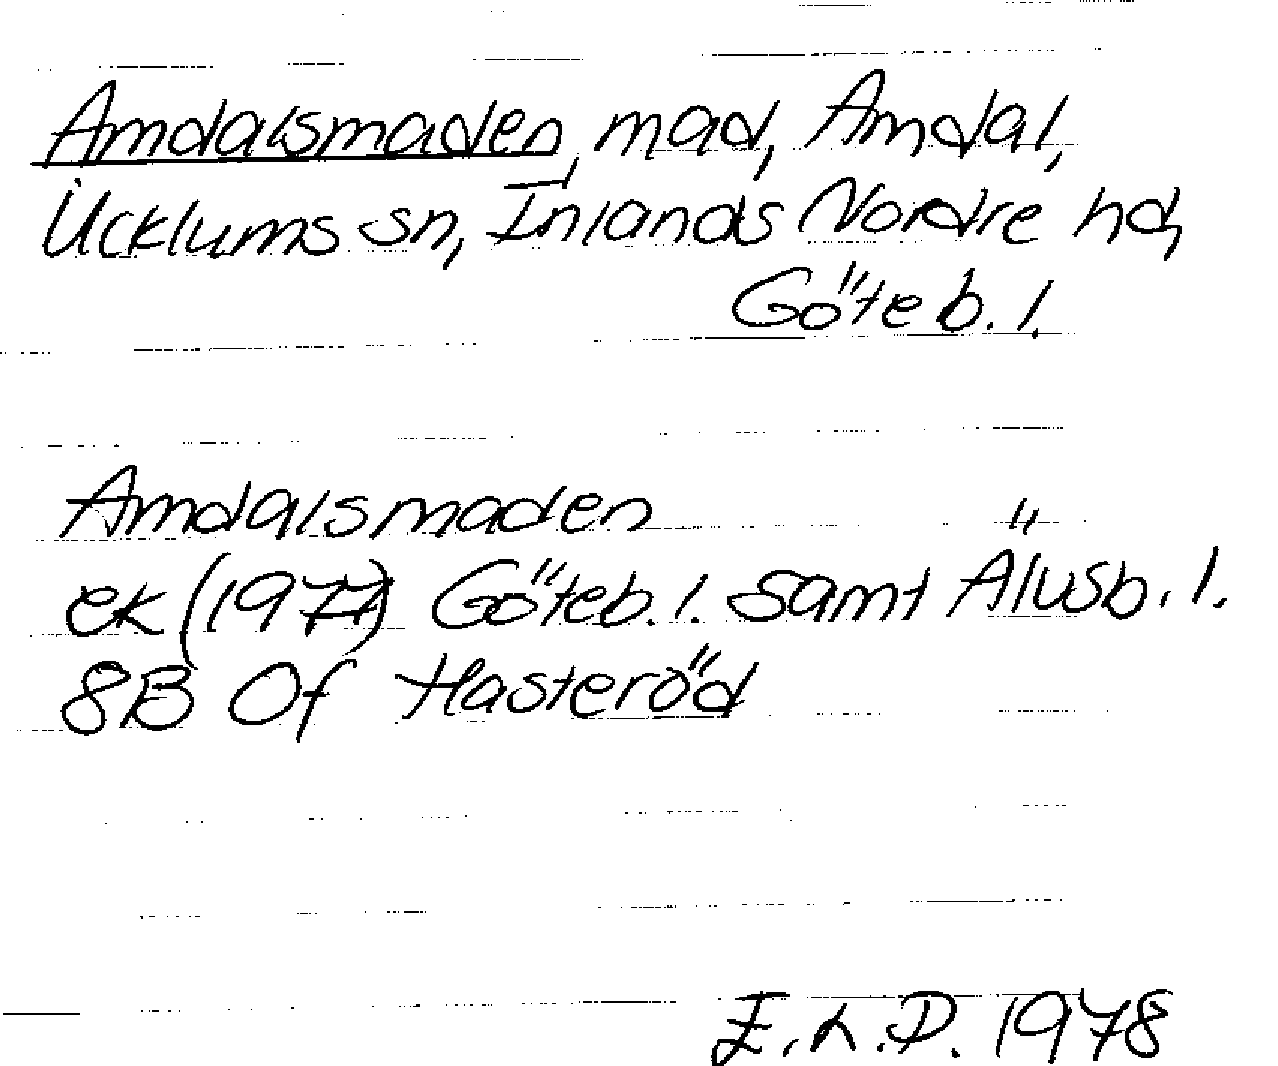 Amdalsmaden, mad, Amdal,
Ucklums sn, Inlands Nordre hd,
Göteb. l.
Amdalsmaden
ek (1977) Göteb. l. samt Älvsb. l.
8B Of Hasteröd
E.L.D. 1978